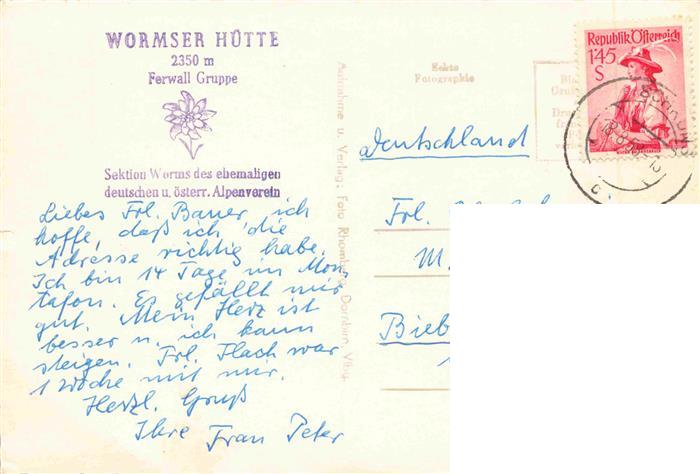 WORMSER HÜTTE
2350 m
Ferwall Gruppe
Sektion Worms des ehemaligen
deutschen u. österr. Alpenverein
Liebes Frl. Bauer, ich
hoffe, daß ich die
Adresse richtig habe.
Ich bin 14 Tage im Mon-
tafon. Es gefällt mir
gut. Mein Herz ist
besser u. ich kann
steigen. Frl. Flach war
1 Woche mit mir.
Herzl. Gruß
Ihre Frau Peter
Aufnahme u. Verlag: Foto Rhomberg, Dornbirn, Vlbg.
Echte
Fotographie
Republik Österreich
1'45
S
Deutschland
Frl.
M.
Bieb